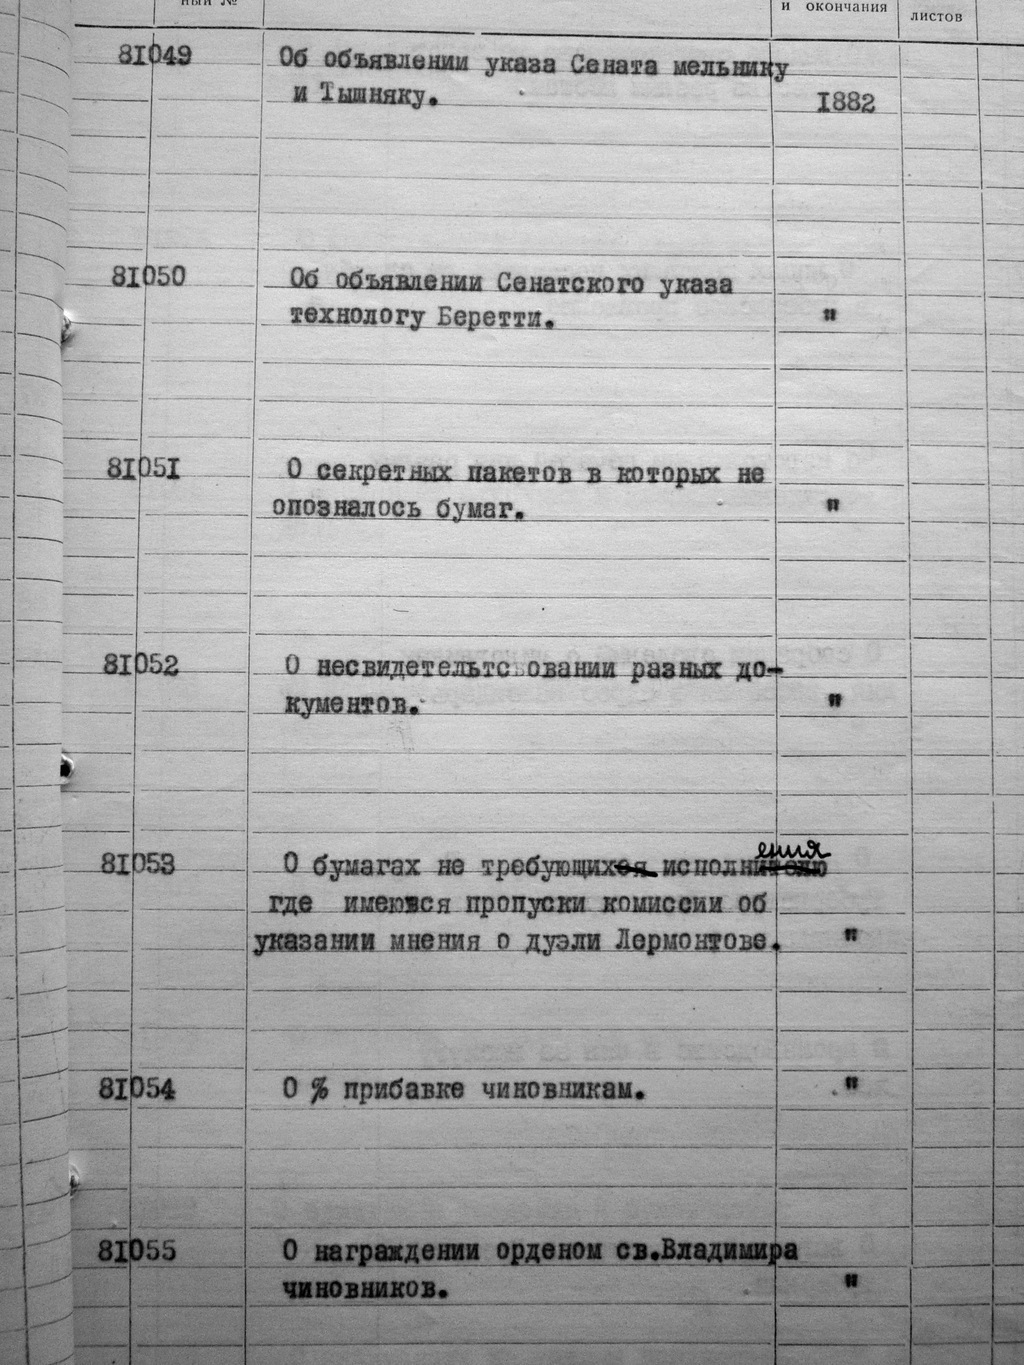 ный №
и окончания
листов
81049 Об объявлении указа Сената мельнику
и Тышняку. 1882
81050 Об объявлении Сенатского указа
технологу Беретти. "
81051 О секретных пакетов в которых не
опозналось бумаг. "
81052 О несвидетельтсвовании разных до-
кументов. "
81053 О бумагах не требующих исполнения
где имеются пропуски комиссии об
указании мнения о дуэли Лермонтове. "
81054 О % прибавке чиновникам. "
81055 О награждении орденом св.Владимира
чиновников. "